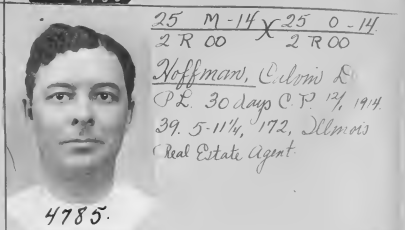 25 M-14 X 25 O-14
2 R OO 2 R OO
Hoffman, Calvin D
P L. 30 days C P. 12/, 1914.
39. 5-11¼, 172, Illinois
Real Estate Agent.
4785.